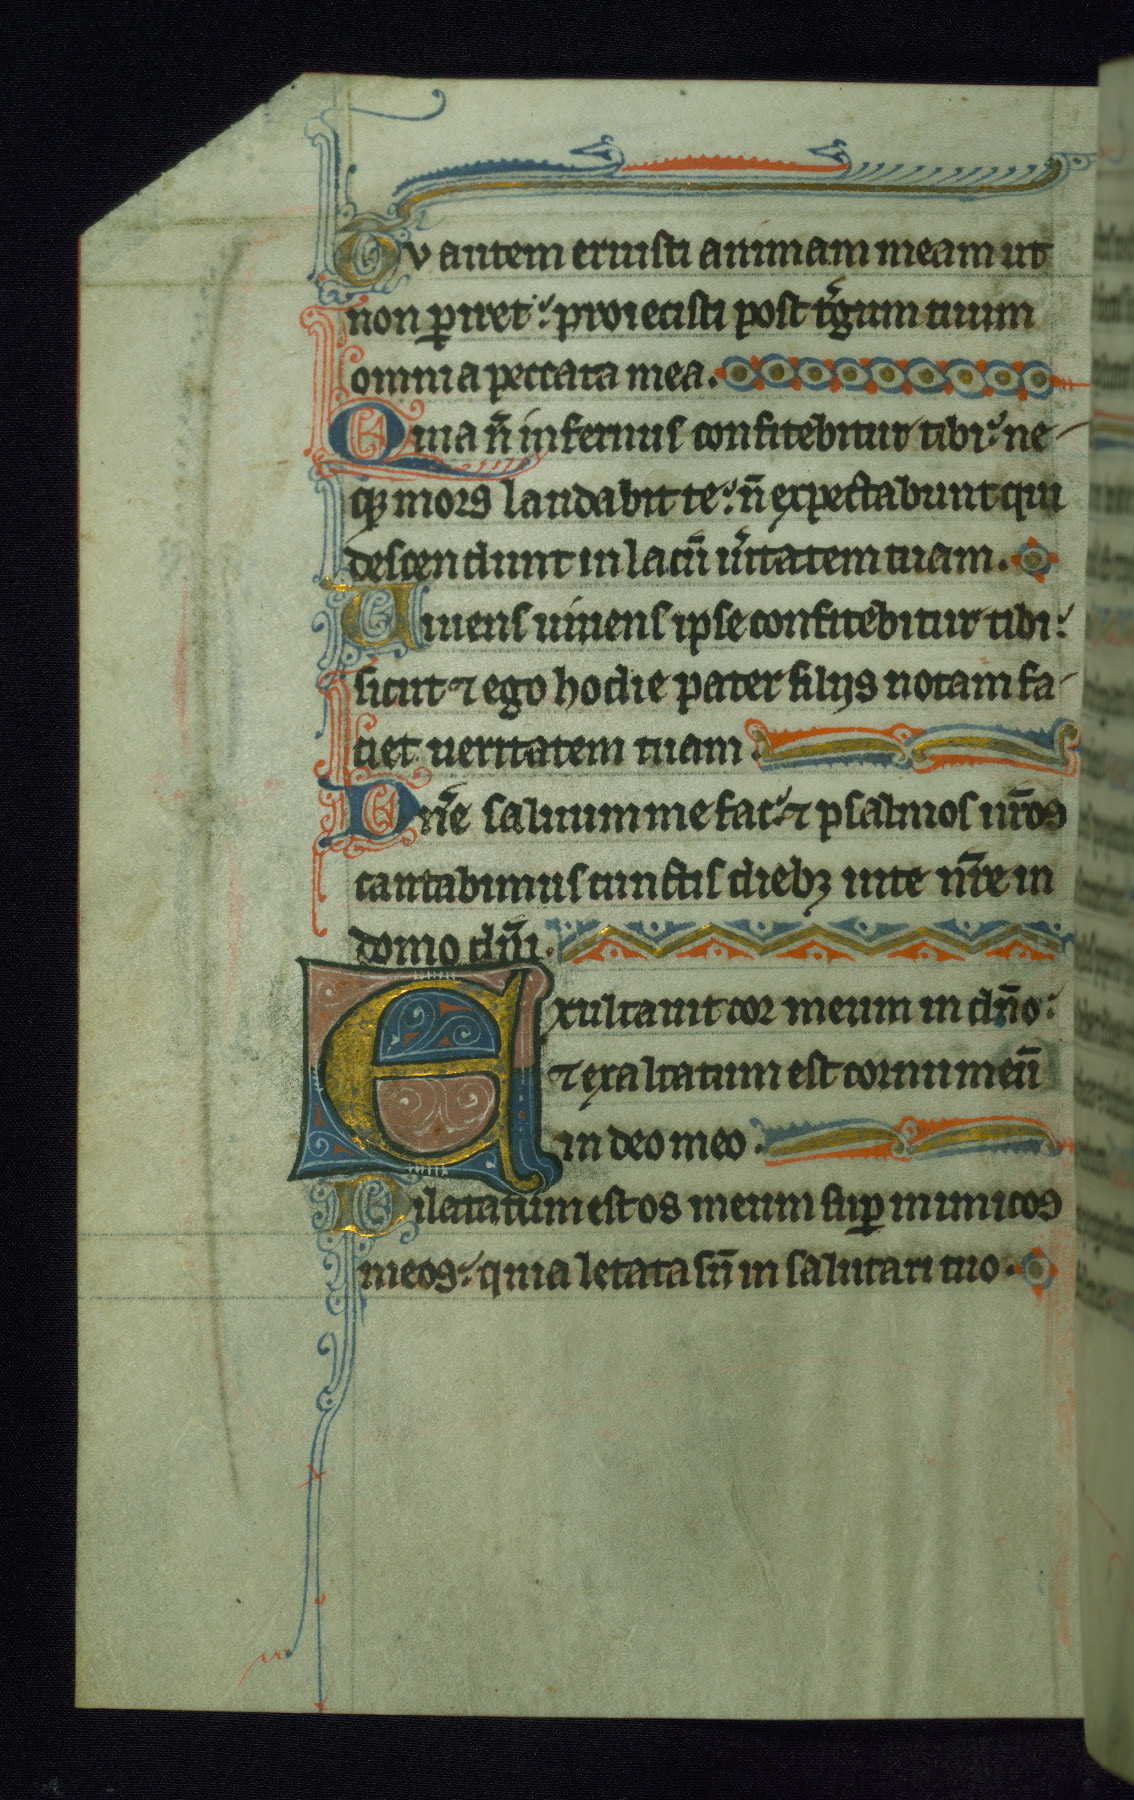 Tu autem eruisti animam meam ut
non ꝑiret: proiecisti post t̾gum tuum
omnia peccata mea.
Quia n̄ infernus confitebitur tibi: ne
qꝫ mors laudabit te: n̄ expectabunt qui
descendunt in lacū u̾itatem tuam.
Viuens uiuens ipse confitebitur tibi:
sicut ⁊ ego hodie pater filijs notam fa
ciet ueritatem tuam.
Dn̄e saluum me fac: ⁊ psalmos nr̄os
cantabimus cunctis diebꝫ uite nr̄e in
domo dn̄i.
Exultauit cor meum in dn̄o:
⁊ exaltatum est cornu meū
in deo meo.
Dilatatum est os meum suꝑ inimicos
meos: quia letata sū in salutari tuo.